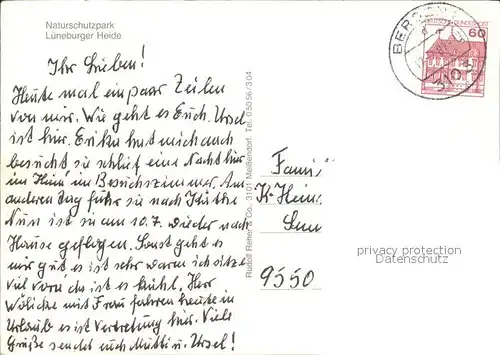 Naturschutzpark
Lüneburger Heide
Ihr Lieben!
Heute mal ein paar Zeilen
von mir. Wie geht es Euch. Ursel
ist hier. Erika hat mich auch
besucht sie schlief eine Nacht hier
im Heim im Besuchszimmer. Am
anderen Tag fuhr sie nach Käthe
Nun ist sie am 10.7. wieder nach
Hause geflogen. Sonst geht es
mir gut es ist sehr warm ich sitze
viel vorn da ist es kühl. Herr
Wölicke mit Frau fahren heute in
Urlaub es ist Vertretung hier. Viele
Grüße sendet euch Mutti u. Ursel!
Rudolf Reher & Co., 3101 Meißendorf, Tel. 0 50 56 / 3 04
DEUTSCHE BUNDESPOST
60
BERGEN
Fami
K-Heinz
9550
privacy protection
Datenschutz